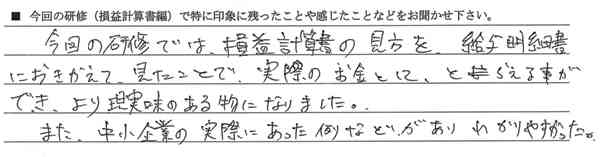 ■ 今回の研修（損益計算書編）で特に印象に残ったことや感じたことなどをお聞かせ下さい。
今回の研修では、損益計算書の見方を、給与明細書
におきかえて、見たことで、実際のお金として、とらえる事が
でき、より現実味のある物になりました。
また、中小企業の実際にあった例などがありわかりやすかった。